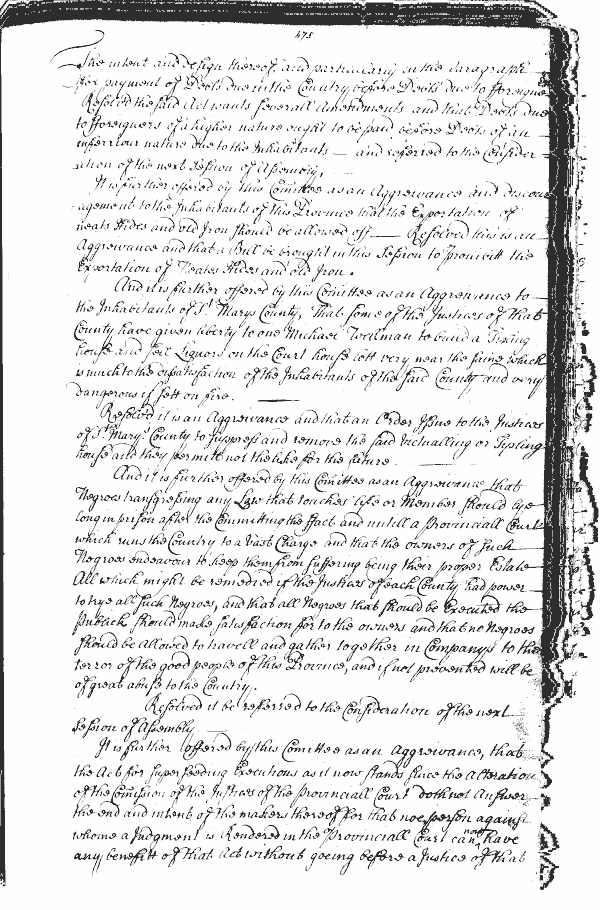 475
The intent and design thereof, and particularly in the Paragraph
for payment of Debts due in the Country before Debts due to fforeigners
Resolved the said Act wants severall Amendments and that Debts due
to fforeigners of a higher nature ought to be paid before Debts of an
inferriour nature due to the Inhabitants — and referred to the Consider-
ation of the next Session of Assembly,
It is further offered by this Comittee as an Aggreivance and discour-
agement to the Inhabitants of this Province that the Exportation of
neats Hides and old Iron should be allowed off — Resolved this is an
Aggreivance and that a Bill be brought in this Session to prohibitt the
Exportation of Neates Hides and old Iron.
And it is further offered by this Comittee as an Aggreivance to
the Inhabitants of St. Marys County, that some of the Justices of that
County have given liberty to one Michael to build a Tipling
house and sell Liquors on the Court house lott very near the same which
is much to the disatisfaction of the Inhabitants of the said County and very
dangerous if sett on fire.
Resolv'd it is an Aggreivance and that an Order Issue to the Justices
of St. Mary's County to suppress and remove the said Victualling or Tipling
house and they permit not the like for the future
And it is further offered by this Comittee as an Aggreivance that
Negroes transgressing any Law that touches life or Member should lye
long in prison after the Committing the ffact and untill a Provinciall Court
which runs the Country to a Vast Charge and that the owners of such
Negroes endeavour to keep them from suffering being their proper Estate
All which might be remedied if the Justices of each County had power
to trye all such Negroes, and that all Negroes that should be Executed the
Publick should make satisfaction for to the owners and that no Negroes
should be allowed to travell and gather together in Companys to the
terror of the good people of this Province, and if not prevented will be
of great abuse to the Country.
Resolved it be referred to the Consideration of the next
Session of Assembly
It is further offered by this Comittee as an Aggreivance, that
the Act for superseeding Executions as it now stands since the Alteration
of the Comission of the Justices of the Provinciall Court doth not Answer
the end and intent of the makers thereof for that noe person against
whome a Judgment is Rendered in the Provinciall Court can not have
any benefitt of that Act without goeing before a Justice of that